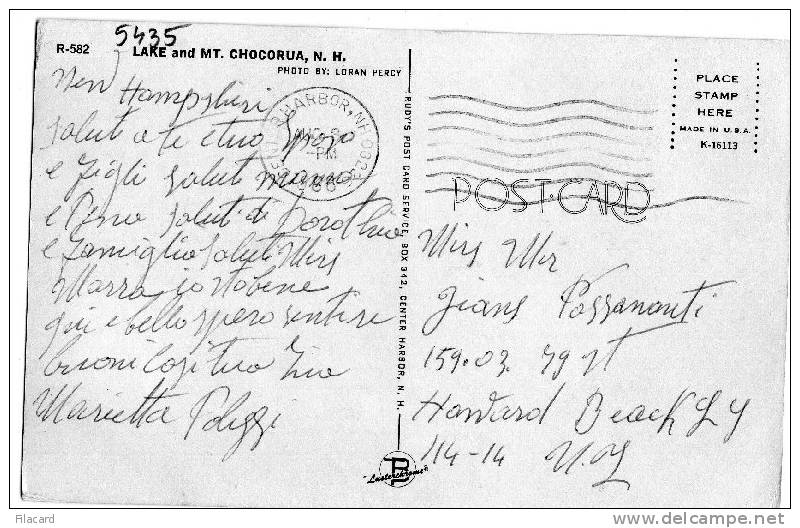 5435
R-582
LAKE and MT. CHOCORUA, N. H.
PHOTO BY: LORAN PERCY
New Hampshiri
saluti a te e tuo sposo
e figli saluti
e saluti di Dorothia
e famiglia saluti Miss
Marra io sto bene
qui e bello spero sentire
buoni cosi tua zia
Marietta Polizzi
CENTER HARBOR, N.H. 0322
PM
RUDY'S POST CARD SERVICE, BOX 312, CENTER HARBOR, N. H.
"Lusterchrome"
PLACE
STAMP
HERE
MADE IN U.S.A.
K-16113
POST CARD
Miss Mr
Passananti
159-03. 79 st
Howard Beach L Y
114-14 N.Y
Filacard
www.delcampe.net